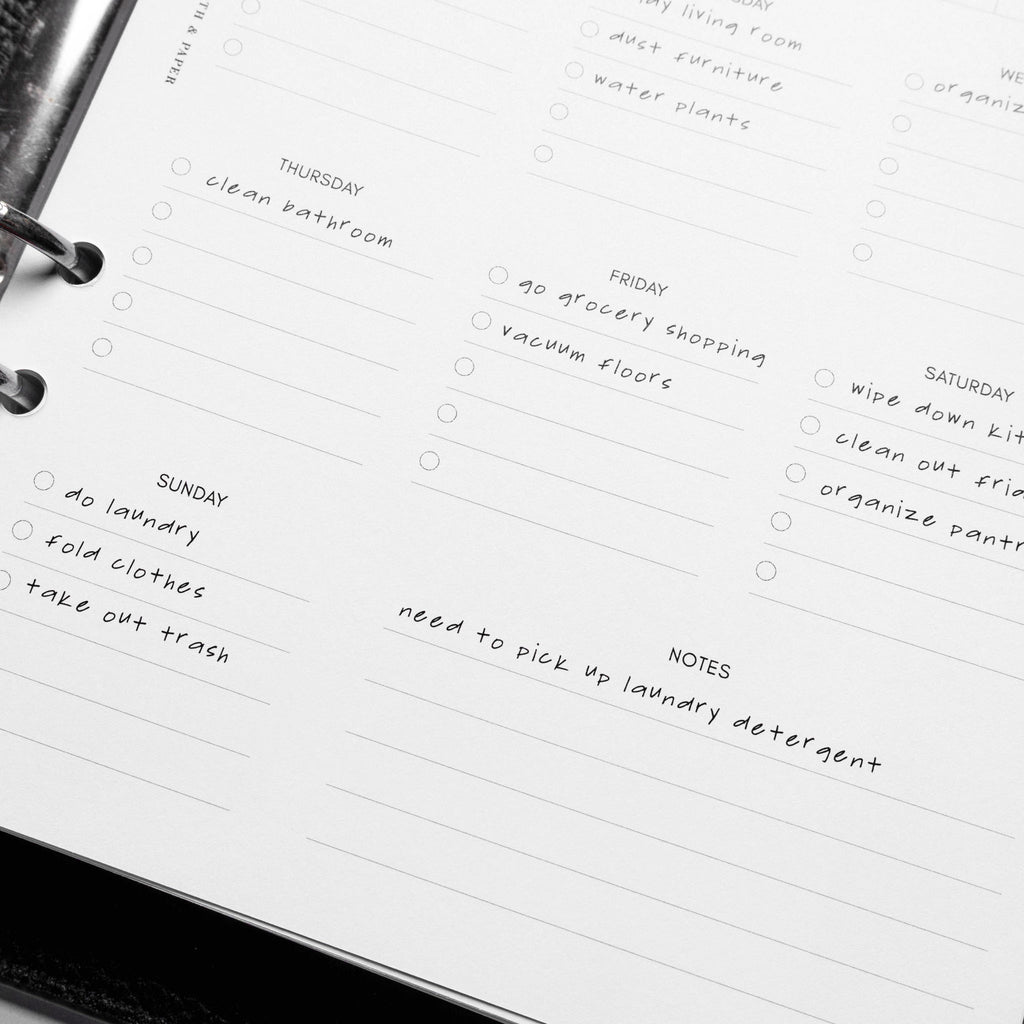 living room
dust furniture
water plants
THURSDAY
clean bathroom
FRIDAY
go grocery shopping
vacuum floors
SATURDAY
wipe down
clean out
organize
SUNDAY
do laundry
fold clothes
take out trash
NOTES
need to pick up laundry detergent
& PAPER